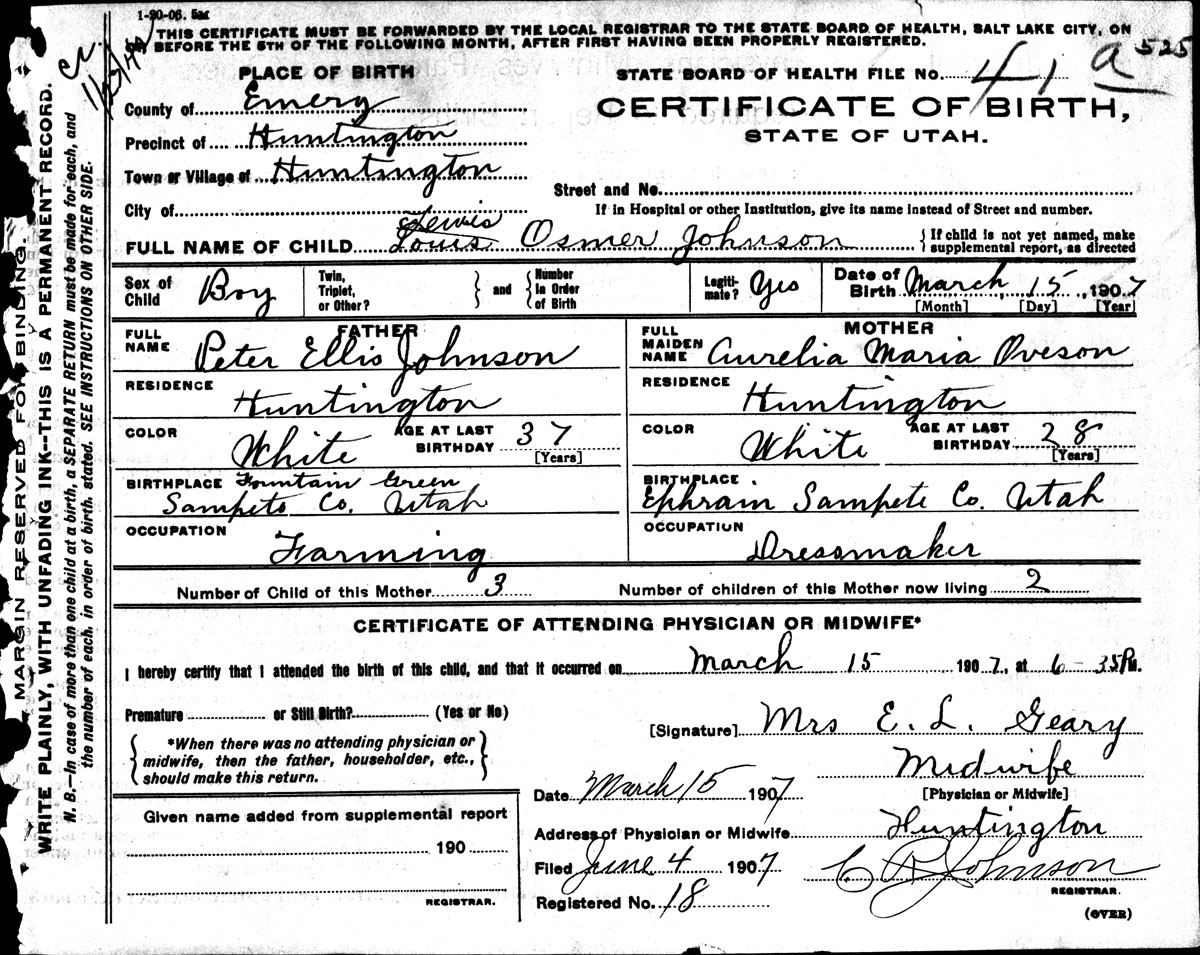 1-20-06. 5m
THIS CERTIFICATE MUST BE FORWARDED BY THE LOCAL REGISTRAR TO THE STATE BOARD OF HEALTH, SALT LAKE CITY, ON
BEFORE THE 5TH OF THE FOLLOWING MONTH, AFTER FIRST HAVING BEEN PROPERLY REGISTERED.
MARGIN RESERVED FOR BINDING.
WRITE PLAINLY, WITH UNFADING INK--THIS IS A PERMANENT RECORD.
N. B.—In case of more than one child at a birth, a SEPARATE RETURN must be made for each, and
the number of each, in order of birth, stated. SEE INSTRUCTIONS ON OTHER SIDE.
PLACE OF BIRTH
STATE BOARD OF HEALTH FILE No. 41 a 525
County of Emery
CERTIFICATE OF BIRTH,
STATE OF UTAH.
Precinct of Huntington
Town or Village of Huntington
Street and No.
City of
If in Hospital or other Institution, give its name instead of Street and number.
Lewis
FULL NAME OF CHILD Louis Osmer Johnson { If child is not yet named, make supplemental report, as directed
Sex of Child Boy Twin, Triplet, or Other? } and { Number in Order of Birth Legiti-mate? Yes Date of Birth March 15, 1907
[Month] [Day] [Year]
FATHER MOTHER
FULL NAME Peter Ellis Johnson FULL MAIDEN NAME Aurelia Maria Oveson
RESIDENCE Huntington RESIDENCE Huntington
COLOR White AGE AT LAST BIRTHDAY 37 [Years] COLOR White AGE AT LAST BIRTHDAY 28 [Years]
BIRTHPLACE Fountain Green BIRTHPLACE
Sampete Co. Utah Ephraim Sampete Co. Utah
OCCUPATION Farming OCCUPATION Dressmaker
Number of Child of this Mother 3 Number of children of this Mother now living 2
CERTIFICATE OF ATTENDING PHYSICIAN OR MIDWIFE*
I hereby certify that I attended the birth of this child, and that it occurred on March 15 1907, at 6-35 P.M.
Premature or Still Birth? (Yes or No)
[Signature] Mrs E. L. Geary
*When there was no attending physician or
midwife, then the father, householder, etc.,
should make this return.
Midwife
[Physician or Midwife]
Date March 15 1907
Given name added from supplemental report
190
REGISTRAR.
Address of Physician or Midwife Huntington
Filed June 4 1907 C R Johnson
REGISTRAR.
Registered No. 18
(OVER)